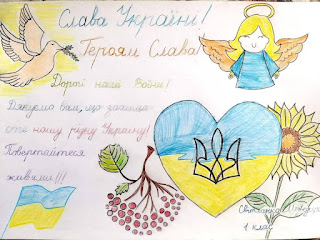 Слава Україні!
Героям Слава!
Дорогі наші Воїни!
Дякуємо вам, що захища-
єте нашу рідну Україну!
Повертайтеся
живими!!!
1 клас